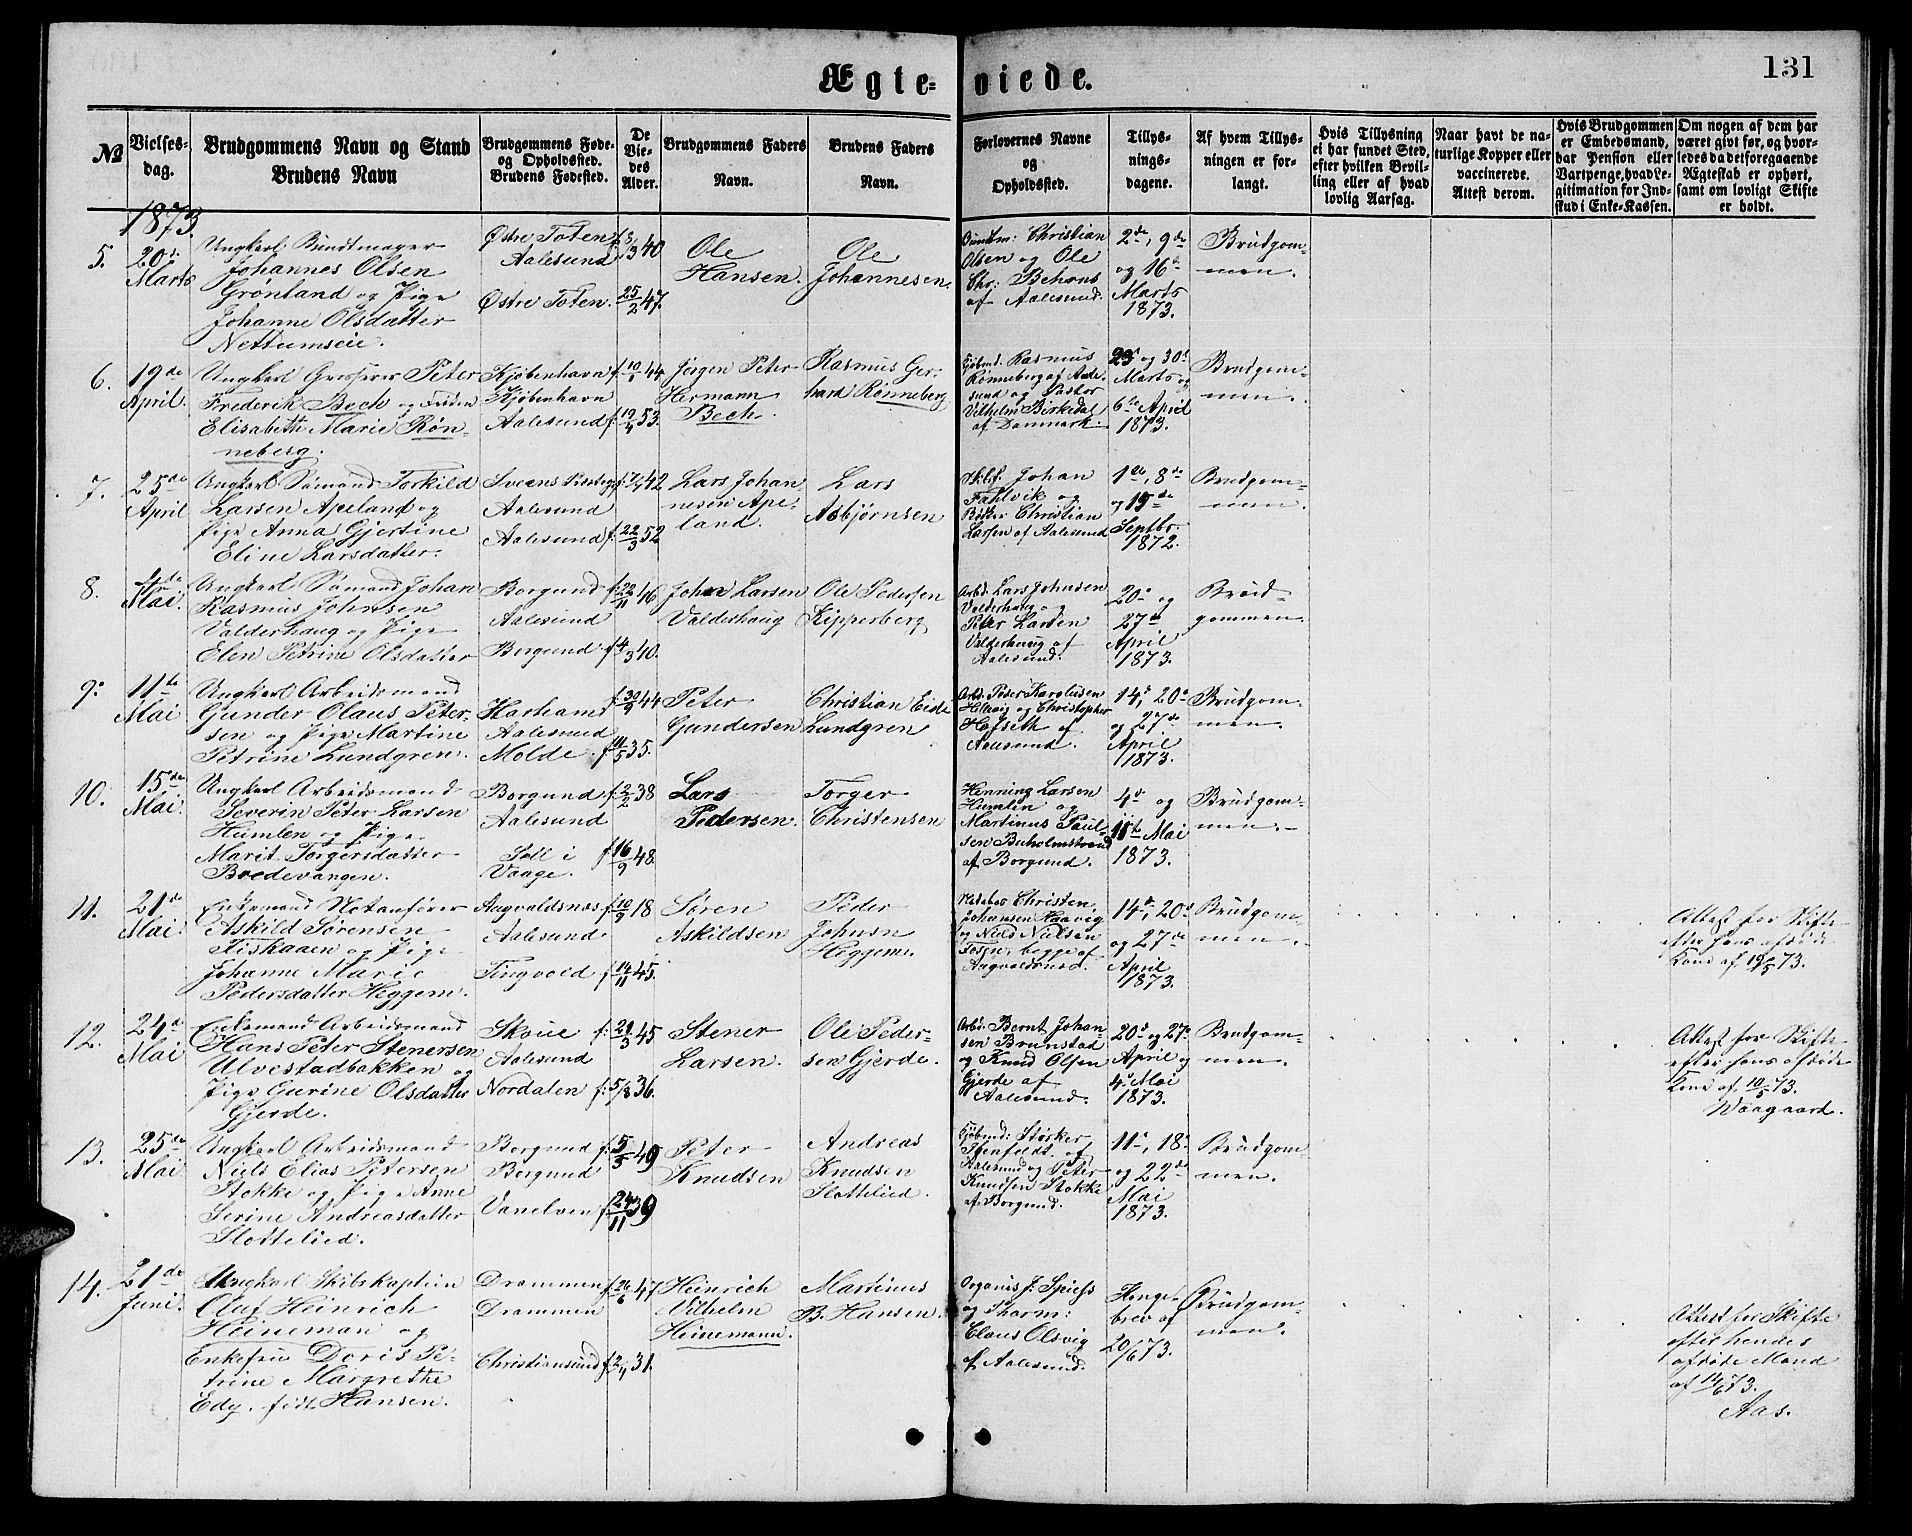 Ægte- viede.
131
№
Vielses-
dag.
Brudgommens Navn og Stand
Brudens Navn
Brudgommens Føde-
og Opholdssted.
Brudens Fødested.
De
Vie-
des
Alder.
Brudgommens Faders
Navn.
Brudens Faders
Navn.
Forlovernes Navne
og
Opholdssted.
Tillys-
nings-
dagene.
Af hvem Tillys-
ningen er for-
langt.
Hvis Tillysning
ei har fundet Sted,
efter hvilken Bevil-
ling eller af hvad
lovlig Aarsag.
Naar havt de na-
turlige Kopper eller
vaccinerede.
Attest derom.
Hvis Brudgommen
er Embedsmand,
har Pension eller
Vartpenge, hvad Le-
gitimation for Ind-
skud i Enke-Kassen.
Om nogen af dem har
været givt før, og hvor-
ledes da det foregaaende
Ægteskab er ophørt,
samt om lovligt Skifte
er holdt.
1873.
5.
20de
Marts
Ungkarl Bundtmager
Johannes Olsen
Grønland og Pige
Johanne Olsdatter
Nettumseie.
Østre Toten
Aalesund
Østre Toten.
f. 8/3 40
25/2 47.
Ole
Hansen.
Ole
Johannesen.
Buntm: Christian
Olsen og Ole
Chr: Behrns
af Aalesund.
2de, 9de
og 16de
Marts
1873.
Brudgom-
men.
6.
19de
April.
Ungkarl Grosserer Peter
Frederik Bech og Frøken
Elisabeth Marie Røn-
neberg.
Kjøbenhavn
Kjøbenhavn
Aalesund
f. 10/1 44
f. 19/4 53.
Jørgen Peter
Hermann
Bech.
Rasmus Ger-
hard Rønneberg
Kjøbmd. Rasmus
Rønneberg af Aale-
sund og Pastor
Vilhelm Birkedal
af Danmark.
23 og 30te
Marts og
6te April
1873.
Brudgom-
men.
7.
25de
April
Ungkarl Sømand Torkild
Larsen Apeland og
Pige Anna Gjertine
Eline Larsdatter.
Sveens Præstegj.
Aalesund
Aalesund
42
f. 22/3 52
Lars Johan
nesen Ape-
land.
Lars
Asbjørnsen
Skibsf. Johan
Fahlvik og
Christian
Larsen af Aalesund
1ste, 8de
og 15de
Septbr.
1872.
Brudgom-
men.
8.
4de
Mai.
Ungkarl Sømand Johan
Rasmus Johnsen
Valderhaug og Pige
Elen Petrine Olsdatter
Borgund
Aalesund
Borgund
f. 22/11 46
f. 4/3 40.
John Larsen
Valderhaug
Ole Pedersen
Kipperberg
Arbd. Lars Johnsen
Valderhaug og
Peter Larsen
Valderhaug af
Aalesund.
20de og
27de
April
1873.
Brud-
gommen.
9.
11te
Mai
Ungkarl Arbeidsmand
Gunder Olaus Peter-
sen og Pige Martine
Petrine Lundgren.
Harham
Aalesund
Molde
f. 30/9 44
f. 14/5 35.
Peter
Gundersen
Christian Eide
Lundgren
Arbd. Peder Karolusen
Hellevig og Christopher
Hofseth af
Aalesund.
14de, 20de
og 27de
April
1873.
Brudgom-
men.
10.
15de
Mai.
Ungkarl Arbeidsmand
Severin Peter Larsen
Humlen og Pige
Marit Torgersdatter
Bredevangen.
Borgund
Aalesund
Sell i
Vaage.
f. 2/2 38
f. 16/9 48.
Lars
Pedersen.
Torger
Christensen
Henning Larsen
Humlen og
Martinus Paul-
sen Buholmstrand
af Borgund.
4de og
11te Mai
1873.
Brudgom-
men.
11.
21de
Mai.
Enkemand Notanfører
Askild Sørensen
Fiskaaen og Pige
Johanne Marie
Pedersdatter Heggem.
Augvaldsnæs
Aalesund
Tingvold
f. 10/9 18
f. 14/11 45.
Søren
Askildsen
Peder
Johnsn
Heggem.
Christen
Johansen Haavig
og Niels Nielsen
Fosen, begge af
Augvaldsnæs.
14de, 20de
og 27de
April
1873.
Brudgom-
men.
Attest for Skifte
efter hans afdøde
Kone af 19/5 73.
12.
24de
Mai
Enkemand Arbeidsmand
Hans Peter Stenersen
Ulvestadbakken og
Pige Gurine Olsdatter
Gjerde.
Skoue
Aalesund
Nordalen
f. 29/3 45
f. 5/8 36.
Stener
Larsen.
Ole Peder-
sen Gjerde.
Arbd. Bernt Johan-
sen Brunstad
og Knud Olsen
Gjerde af
Aalesund.
20de og 27de
April og
4de Mai
1873.
Brudgom-
men.
Attest for Skifte
efter hans afdøde
Kone af 10/5 73.
Waagaard.
13.
25de
Mai
Ungkarl Arbeidsmand
Niels Elias Petersen
Stokke og Pige Anne
Serine Andreasdatter
Slottelied.
Borgund
Borgund
Vanelven
f. 5/5 49
f. 24/11 39
Peter
Knudsen
Andreas
Knudsen
Slottelied.
Kjøbmd: Størker
af
Aalesund og Peter
Knudsen Stokke
af Borgund.
11te, 18de
og 22de
Mai
1873.
Brudgom-
men.
14.
21de
Juni.
Ungkarl Skibskaptein
Oluf Heinrich
Heineman og
Enkefru Doris Pe-
trine Margrethe
Edg. født Hansen.
Drammen
Drammen
Christiansund
f. 26/6 47
31.
Heinrich
Vilhelm
Heinemann.
Martinus
B. Hansen.
Organist J. Spiess
og Pharm:
Claus Olsvig
af Aalesund.
Konge-
brev af
20/6 73.
Brudgom-
men.
Attest for Skifte
efter hendes
afdøde Mand
af 14/6 73.
Aas.